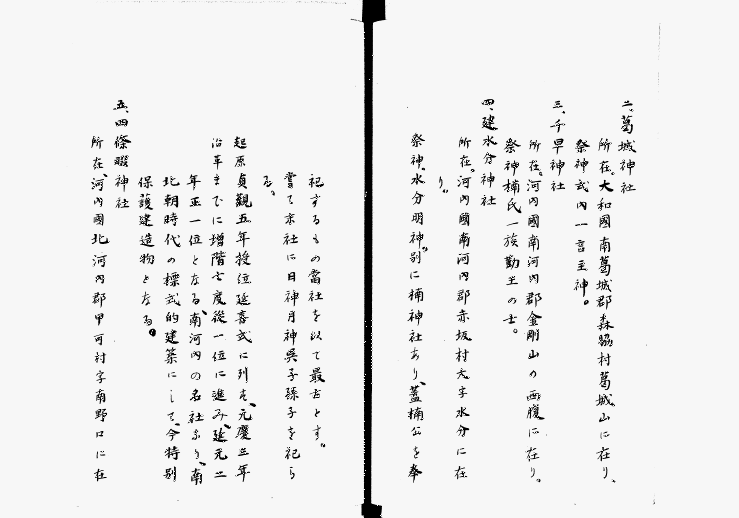 二、葛城神社
所在。大和國南葛城郡森脇村葛城山に在り、
祭神式内一言主神。
三、千早神社
所在。河内國南河内郡金剛山の西腹に在り。
祭神楠氏一族勤王の士。
四、建水分神社
所在。河内國南河内郡赤坂村大字水分に在
り。
祭神、水分明神。別に楠神社あり、蓋楠公を奉
祀するもの當社を以て最古とす。
嘗て京社に日神月神吳子孫子を祀ら
る。
起原貞觀五年授位延喜式に列す、元慶三年
沿革までに增階 度後一位に進み、延元二
年正一位となる、南河内の名社なり、南
北朝時代の標式的建築にして、今特別
保護建造物となる。
五、四條畷神社
所在、河内國北河内郡甲可村字南野口に在